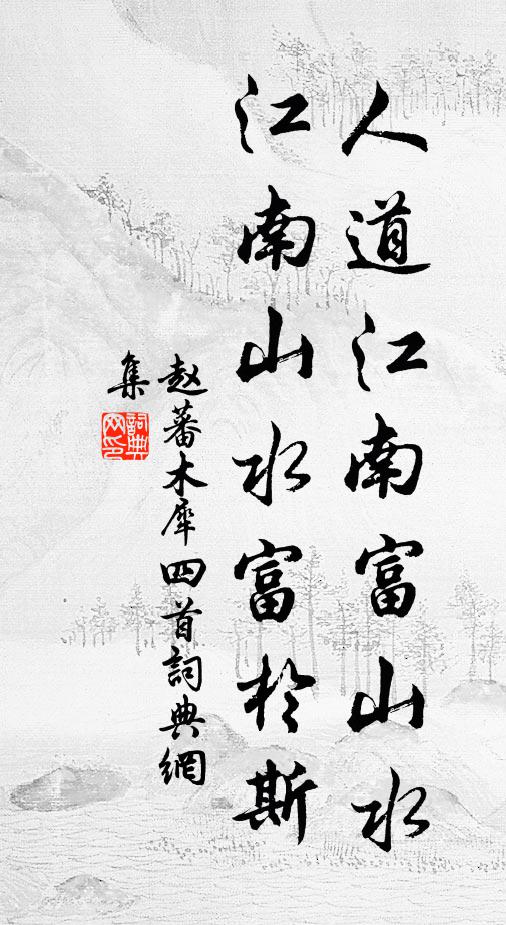 人道江南富山水
江南山水富於斯
赵蕃木犀四首詞典網
集
詞典网印